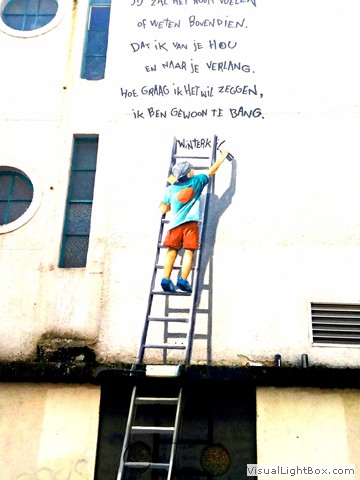 JIJ ZAL HET NOOIT VOELEN
OF WETEN BOVENDIEN.
DAT IK VAN JE HOU
EN NAAR JE VERLANG.
HOE GRAAG IK HET WIL ZEGGEN,
IK BEN GEWOON TE BANG.
WINTERK
VisualLightBox.com